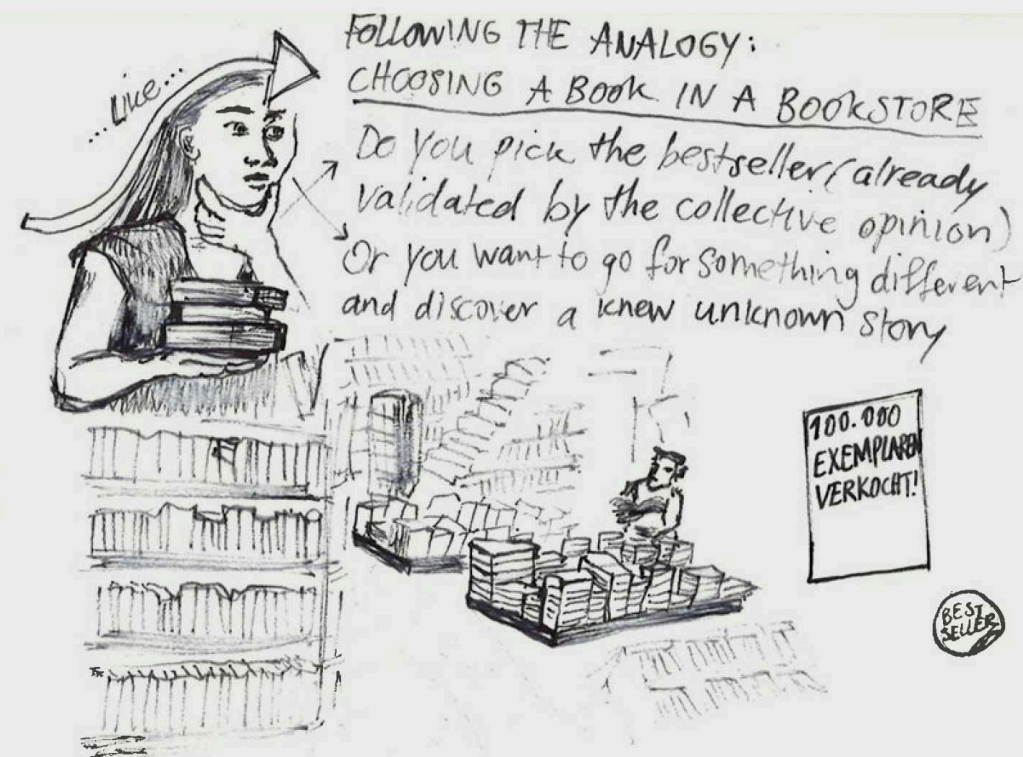 ...LIKE...
FOLLOWING THE ANALOGY:
CHOOSING A BOOK IN A BOOKSTORE
Do you pick the bestseller (already
validated by the collective opinion)
Or you want to go for something different
and discover a knew unknown story
100.000
EXEMPLAREN
VERKOCHT!
BEST
SELLER